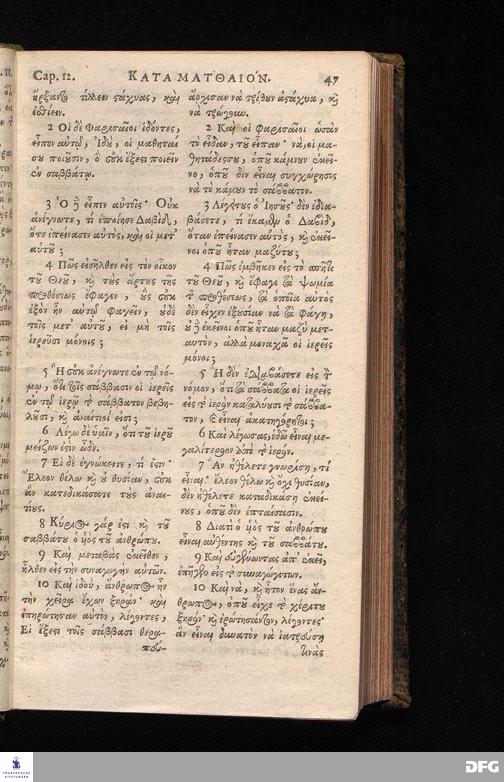 Cap. 12. ΚΑΤΑ ΜΑΤΘΑΙΟΝ. 47
ἤρξαντο τίλλειν στάχυας, καὶ
ἐσθίειν.
2 Οἱ δὲ Φαρισαῖοι ἰδόντες,
εἶπον αὐτῷ, Ἰδού, οἱ μαθηταί
σου ποιοῦσιν, ὃ οὐκ ἔξεστι ποιεῖν
ἐν σαββάτῳ.
3 Ὁ δὲ εἶπεν αὐτοῖς· Οὐκ
ἀνέγνωτε, τί ἐποίησε Δαβὶδ,
ὅτε ἐπείνασεν αὐτὸς, καὶ οἱ μετ'
αὐτοῦ;
4 Πῶς εἰσῆλθεν εἰς τὸν οἶκον
τοῦ Θεοῦ, καὶ τοὺς ἄρτους τῆς
προθέσεως ἔφαγεν, οὓς οὐκ
ἐξὸν ἦν αὐτῷ φαγεῖν, οὐδὲ
τοῖς μετ' αὐτοῦ, εἰ μὴ τοῖς
ἱερεῦσι μόνοις;
5 Ἢ οὐκ ἀνέγνωτε ἐν τῷ νό-
μῳ, ὅτι τοῖς σάββασιν οἱ ἱερεῖς
ἐν τῷ ἱερῷ τὸ σάββατον βεβη-
λοῦσι, καὶ ἀναίτιοί εἰσι;
6 Λέγω δὲ ὑμῖν, ὅτι τοῦ ἱεροῦ
μείζων ἐστὶν ὧδε.
7 Εἰ δὲ ἐγνώκειτε, τί ἐστιν·
Ἔλεον θέλω καὶ οὐ θυσίαν, οὐκ
ἂν κατεδικάσατε τοὺς ἀναι-
τίους.
8 Κύριος γάρ ἐστι καὶ τοῦ
σαββάτου ὁ υἱὸς τοῦ ἀνθρώπου.
9 Καὶ μεταβὰς ἐκεῖθεν,
ἦλθεν εἰς τὴν συναγωγὴν αὐτῶν.
10 Καὶ ἰδού, ἄνθρωπος ἦν
τὴν χεῖρα ἔχων ξηράν· καὶ
ἐπηρώτησαν αὐτὸν, λέγοντες,
Εἰ ἔξεστι τοῖς σάββασι θερα-
πεύ-
ἄρχισαν νὰ τρίβουν ἀστάχυα, καὶ
νὰ τρώγουν.
2 Καὶ οἱ Φαρισαῖοι ὡσὰν
τὸ εἶδαν, τοῦ εἶπαν· νὰ, οἱ μα-
θητάδες σου, ὁποῦ κάμνουν ἐκεῖ-
νο, ὁποῦ δὲν εἶναι συγχώρησις
νὰ τὸ κάμουν τὸ σάββατον.
3 Λέγει τους ὁ Ἰησοῦς· δὲν ἐδια-
βάσετε, τί ἔκαμεν ὁ Δαβὶδ,
ὅταν ἐπείνασεν αὐτὸς, καὶ ἐκεῖ-
νοι ὁποῦ ἦταν μαζύ του;
4 Πῶς ἐμβῆκεν εἰς τὸ σπῆτι
τοῦ Θεοῦ, καὶ ἔφαγε τὰ ψωμία
τῆς προθέσεως, τὰ ὁποῖα αὐτὸς
δὲν εἶχεν ἐξουσίαν νὰ τὰ φάγῃ,
οὐδὲ ἐκεῖνοι ὁποῦ ἦταν μαζὺ μετ'
αὐτὸν, ἀλλὰ μοναχὰ οἱ ἱερεῖς
μόνοι;
5 Ἢ δὲν ἐδιαβάσετε εἰς τὸν
νόμον, ὅτι τὰ σάββατα οἱ ἱερεῖς
εἰς τὸ ἱερὸν καταλύουσι τὸ σάββα-
τον, καὶ εἶναι ἀκατηγόρητοι;
6 Καὶ λέγω σας, ἐδῶ εἶναι με-
γαλίτερον ἀπὸ τὸ ἱερόν.
7 Ἂν ἠθέλετε γνωρίσῃ, τί
εἶναι· ἔλεον θέλω καὶ ὄχι θυσίαν,
δὲν ἠθέλετε καταδικάσῃ ἐκεί-
νους, ὁποῦ δὲν ἐπταίσασιν.
8 Διατὶ ὁ υἱὸς τοῦ ἀνθρώπου
εἶναι αὐθέντης καὶ τοῦ σαββάτου.
9 Καὶ εὐγαίνωντας ἀπ' ἐκεῖ,
ἐπῆγεν εἰς τὸ συναγώγι των.
10 Καὶ νὰ, καὶ ἦτον ἕνας ἄν-
θρωπος, ὁποῦ εἶχε τὸ χέρι του
ξηρόν· καὶ ἐρώτησάν τον, λέγοντες·
ἂν εἶναι δυνατὸν νὰ ἰατρεύσῃ
τινὰς
FRANCKESCHE
STIFTUNGEN
DFG